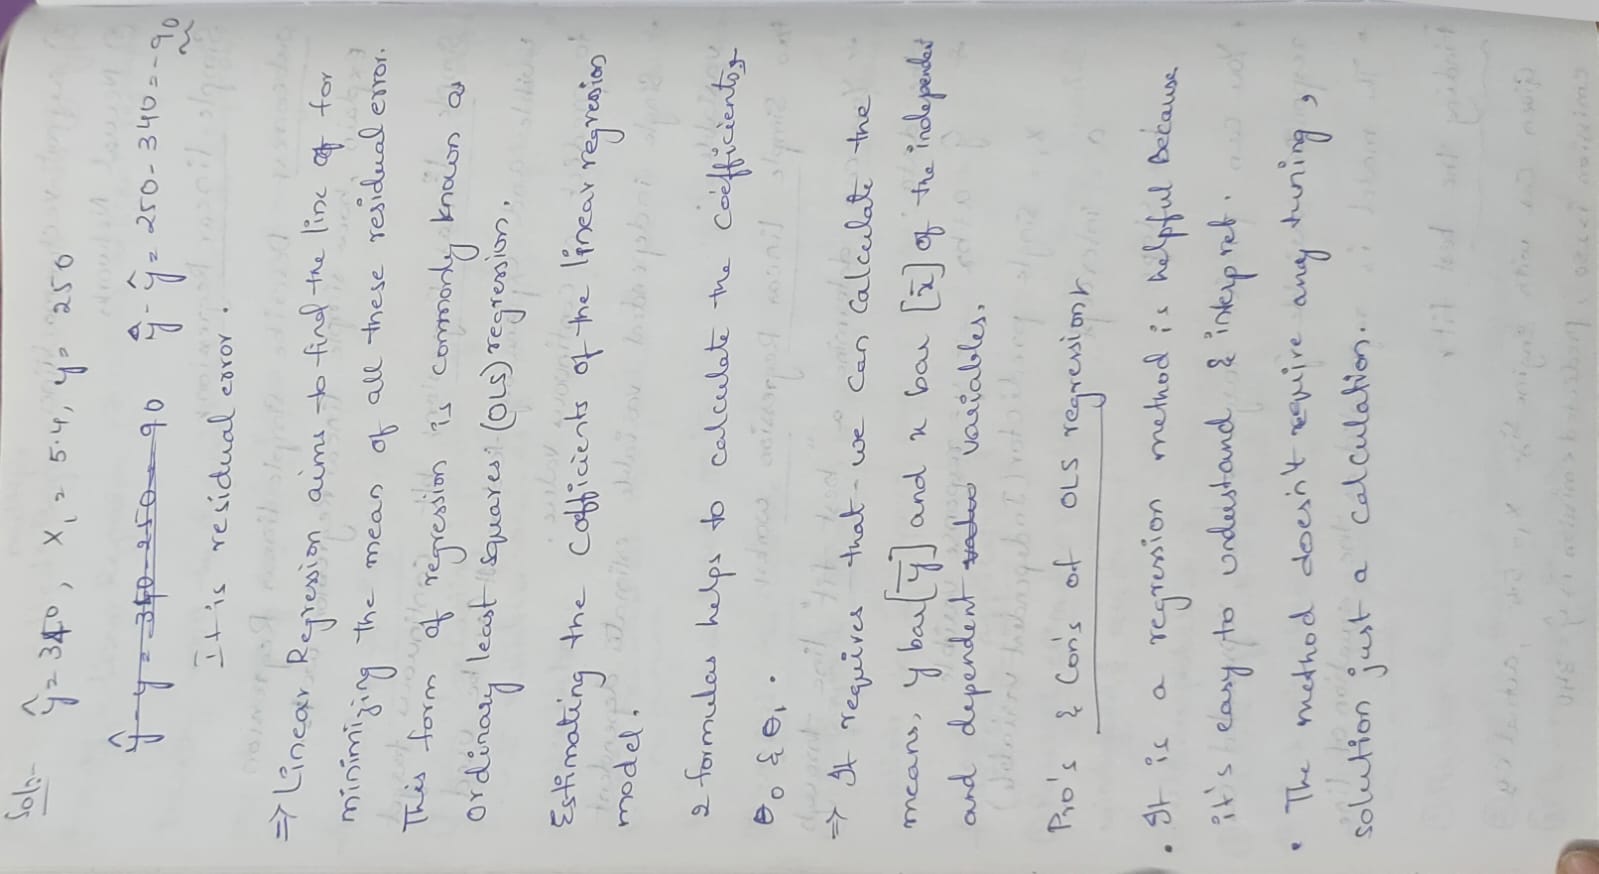 Sol:-
ŷ = 340, x₁ = 5.4, y = 250
ŷ - y = 340 - 250 = 90 ŷ - ŷ = 250 - 340 = -90
It is residual error.
⇒ Linear Regression aims to find the line of for
minimizing the mean of all these residual error.
This form of regression is commonly known as
ordinary least squares (OLS) regression.
Estimating the Cofficients of the linear regression
model.
2 formulas helps to calculate the coefficients
θ₀ & θ₁.
⇒ It requires that we can calculate the
means, y bar [ȳ] and x bar [x̄] of the independent
and dependent variables.
Pro's & Con's of OLS regression
• It is a regression method is helpful Because
it's easy to understand & interpret.
• The method doesn't require any tuning,
solution just a calculation.